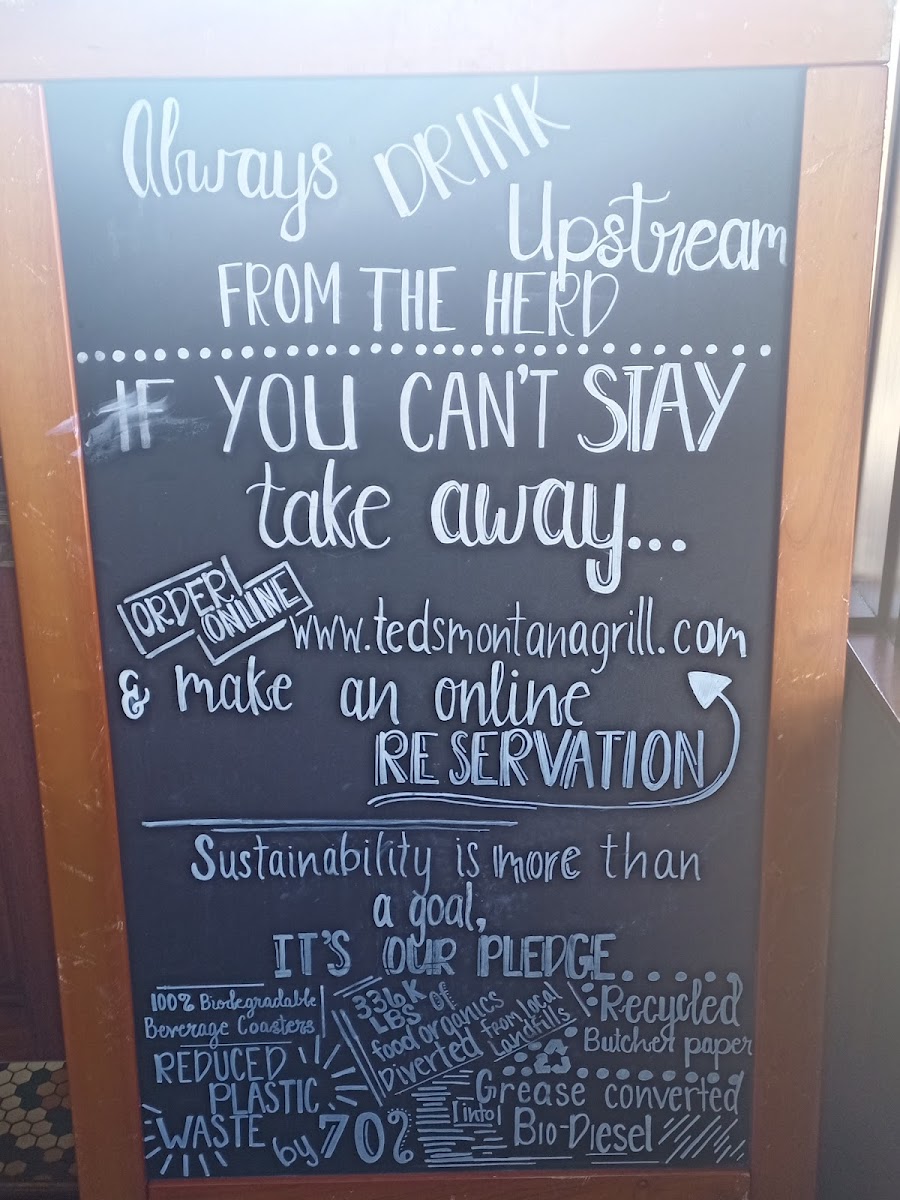 Always DRINK
Upstream
FROM THE HERD
IF YOU CAN'T STAY
take away...
ORDER
ONLINE
www.tedsmontanagrill.com
& make an online
RESERVATION
Sustainability is more than
a goal,
IT'S OUR PLEDGE...
100% Biodegradable
Beverage Coasters
REDUCED
PLASTIC
WASTE
by 70%
336K
LBS OF
food organics
Diverted from local
Landfills
Recycled
Butcher paper
Grease converted
into
BIO-DIESEL